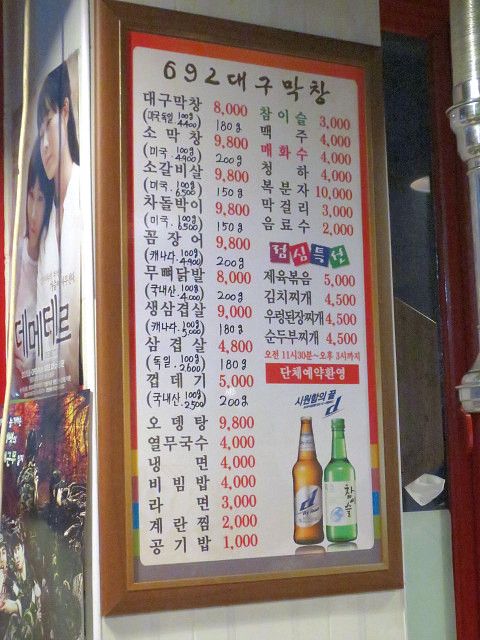 692대구막창
대구막창 8,000
(미국,독일 100g 4400) 180g
소막창 9,800
(미국. 100g 4900) 200g
소갈비살 9,800
(미국. 100g 6500) 150g
차돌박이 9,800
(미국. 100g 6500) 150g
꼼장어 9,800
(캐나다. 100g 4900) 200g
무뼈닭발 8,000
(국내산. 100g 4000) 200g
생삼겹살 9,000
(캐나다. 100g 5000) 180g
삼겹살 4,800
(독일. 100g 2600) 180g
껍데기 5,000
(국내산. 100g 2500) 200g
오뎅탕 9,800
열무국수 4,000
냉면 4,000
비빔밥 4,000
라면 3,000
계란찜 2,000
공기밥 1,000
참이슬 3,000
맥주 4,000
매화수 4,000
청하 4,000
복분자 10,000
막걸리 3,000
음료수 2,000
점심특선
제육볶음 5,000
김치찌개 4,500
우렁된장찌개 4,500
순두부찌개 4,500
오전 11시30분~오후 3시까지
단체예약환영
시원함의 끝
d
d
참이슬
데메테르